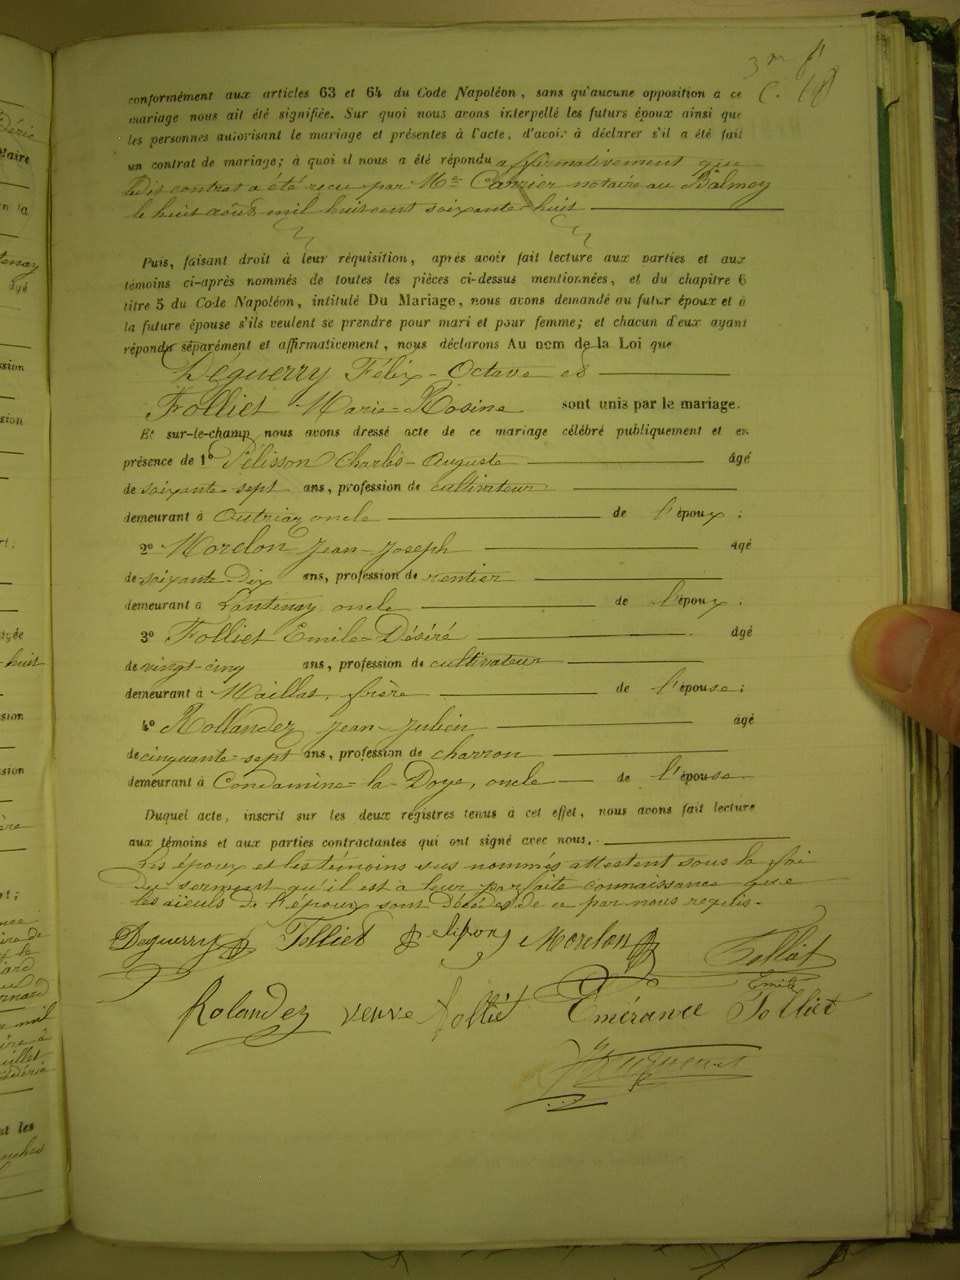 conformément aux articles 63 et 64 du Code Napoléon, sans qu'aucune opposition a ce
mariage nous ait été signifiée. Sur quoi nous avons interpellé les futurs époux ainsi que
les personnes autorisant le mariage et présentes à l'acte, d'avoir à déclarer s'il a été fait
un contrat de mariage; à quoi il nous a été répondu affirmativement que
ledit contrat a été reçu par Me notaire au Balmey
le huit août mil huit cent soixante-huit
Puis, faisant droit à leur réquisition, après avoir fait lecture aux parties et aux
témoins ci-après nommés de toutes les pièces ci-dessus mentionnées, et du chapitre 6
titre 5 du Code Napoléon, intitulé Du Mariage, nous avons demandé au futur époux et à
la future épouse s'ils veulent se prendre pour mari et pour femme; et chacun d'eux ayant
répondu séparément et affirmativement, nous déclarons Au nom de la Loi que
Deguerry Félix-Octave et
Folliet Marie-Rosine sont unis par le mariage.
Et sur-le-champ nous avons dressé acte de ce mariage célébré publiquement et en
présence de 1º Pélisson Charles-Auguste âgé
de soixante-sept ans, profession de cultivateur
demeurant à Outriaz oncle de l'époux;
2º Morelon Jean-Joseph âgé
de soixante dix ans, profession de rentier
demeurant à Lantenay oncle de l'époux;
3º Folliet Emile-Désiré âgé
de vingt-cinq ans, profession de cultivateur
demeurant à Maillat, frère de l'épouse;
4º Rollandez Jean-Julien âgé
de cinquante-sept ans, profession de charron
demeurant à Condamine-la-Doye, oncle de l'épouse
Duquel acte, inscrit sur les deux registres tenus à cet effet, nous avons fait lecture
aux témoins et aux parties contractantes qui ont signé avec nous.
Les époux et les témoins sus nommés attestent sous la foi
du serment qu'il est à leur parfaite connaissance que
les aïeuls de l'époux sont décédés de ce par nous requis.
Deguerry Folliet pelisson Morelon Folliet
Emile
Rolandez veuve folliet Emérance Folliet